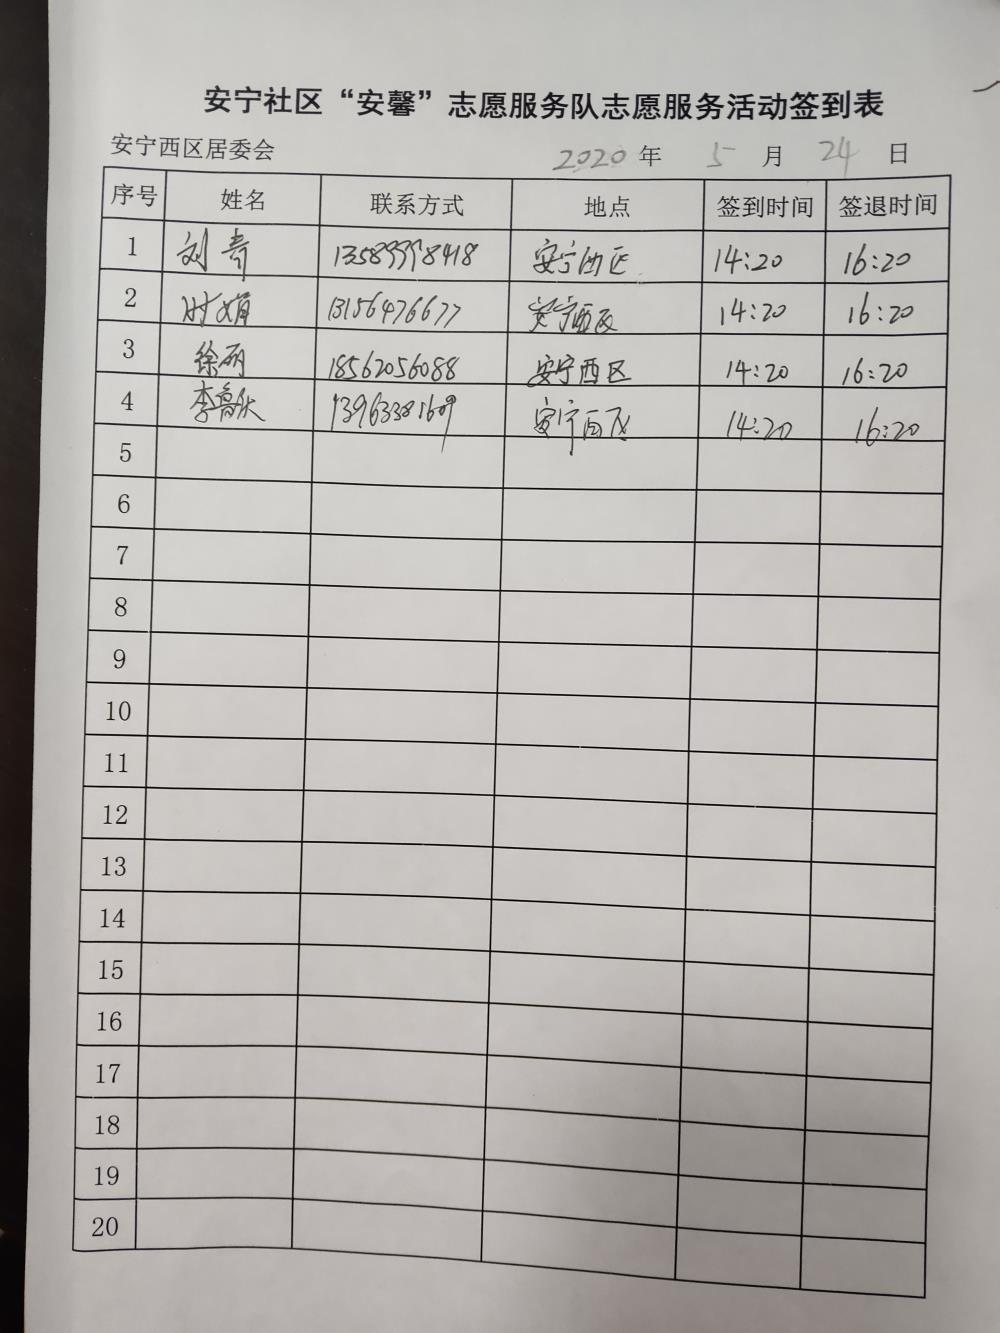 安宁社区“安馨”志愿服务队志愿服务活动签到表
安宁西区居委会 2020 年 5 月 24 日
序号 姓名 联系方式 地点 签到时间 签退时间
1 刘青 13589998418 安宁西区 14:20 16:20
2 时娟 13156476677 安宁西区 14:20 16:20
3 徐丽 18562056088 安宁西区 14:20 16:20
4 安宁西区 14:20 16:20
5
6
7
8
9
10
11
12
13
14
15
16
17
18
19
20